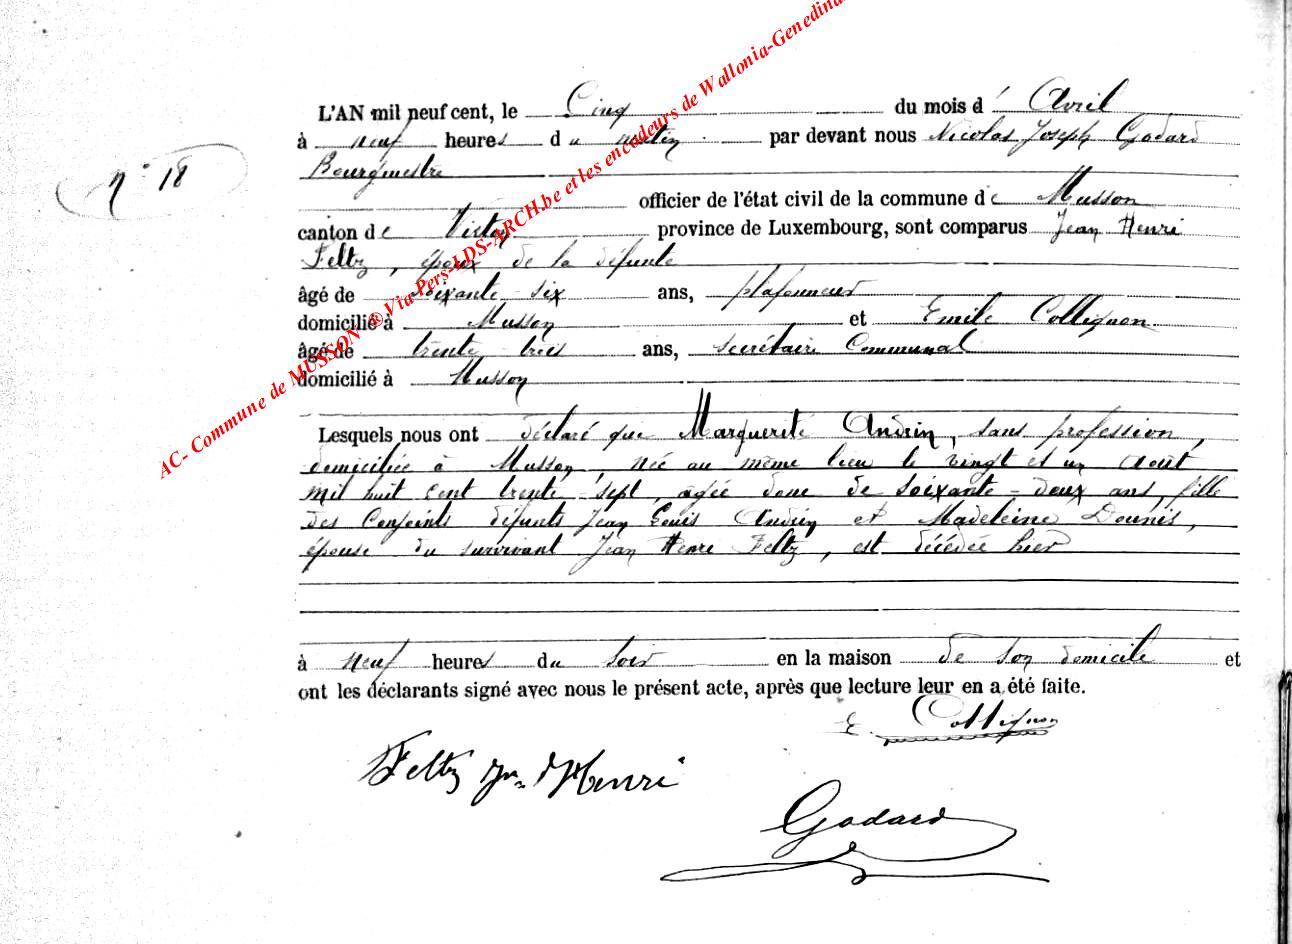 L'AN mil neuf cent, le Cinq du mois d' Avril
à neuf heures du matin par devant nous Nicolas Joseph Godard
Bourgmestre
n° 18
officier de l'état civil de la commune de Musson
canton de Virton province de Luxembourg, sont comparus Jean Henri
Feltz, époux de la défunte
âgé de soixante-six ans, plafonneur
domicilié à Musson et Emile Collignon
âgé de trente-trois ans, secrétaire Communal
domicilié à Musson
Lesquels nous ont déclaré que Marguerite Andrin, sans profession,
domiciliée à Musson, née au même lieu le vingt et un Août
mil huit cent trente-sept, âgée donc de soixante-deux ans, fille
des conjoints défunts Jean Louis Andrin et Madeleine Dounis,
épouse du survivant Jean Henri Feltz, est décédée hier
à neuf heures du soir en la maison de son domicile et
ont les déclarants signé avec nous le présent acte, après que lecture leur en a été faite.
E. Collignon
Feltz Jn Henri
Godard
AC- Commune de MUSSON ® Via Pers-LDS-ARCH.be et les encodeurs de Wallonia-Genedina